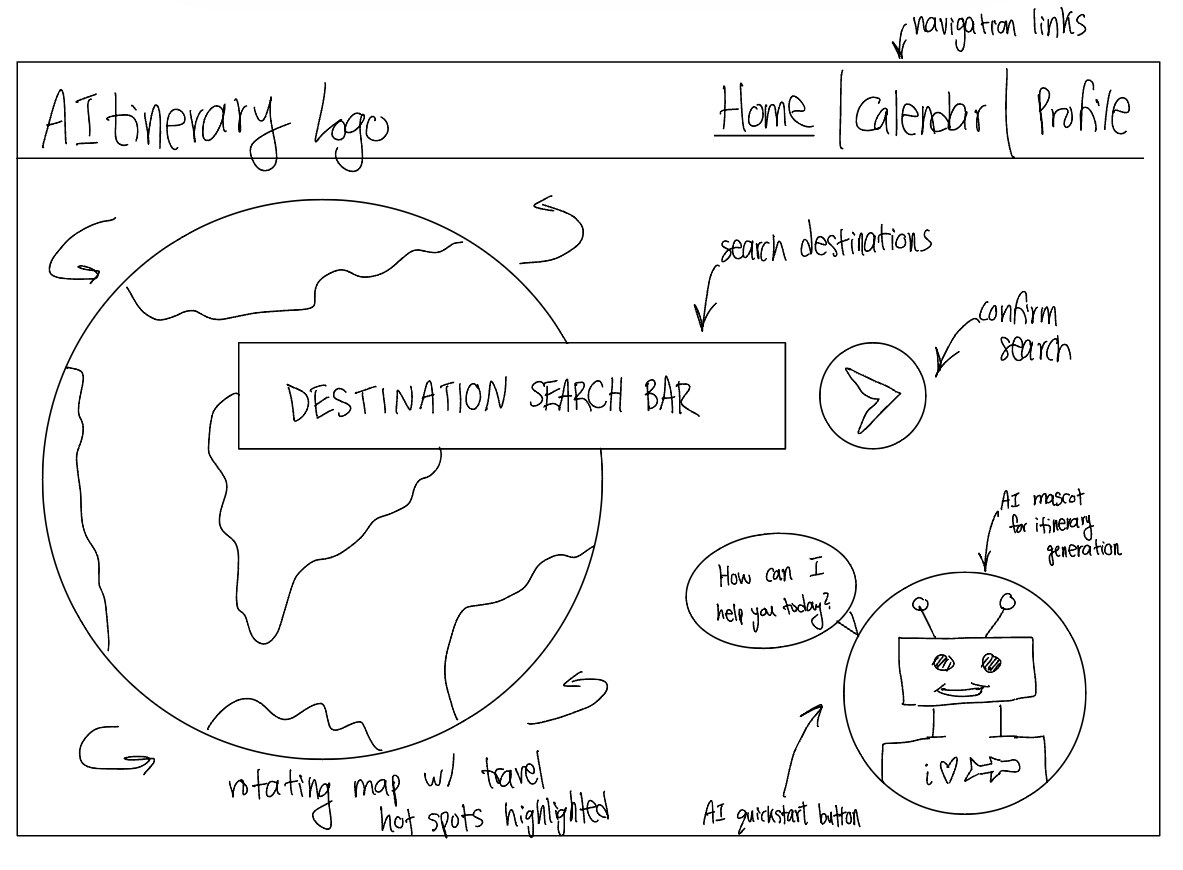 navigation links
AItinerary Logo
Home
Calendar
Profile
search destinations
confirm
search
DESTINATION SEARCH BAR
AI mascot
for itinerary
generation
How can I
help you today?
i
rotating map w/ travel
hot spots highlighted
AI quickstart button